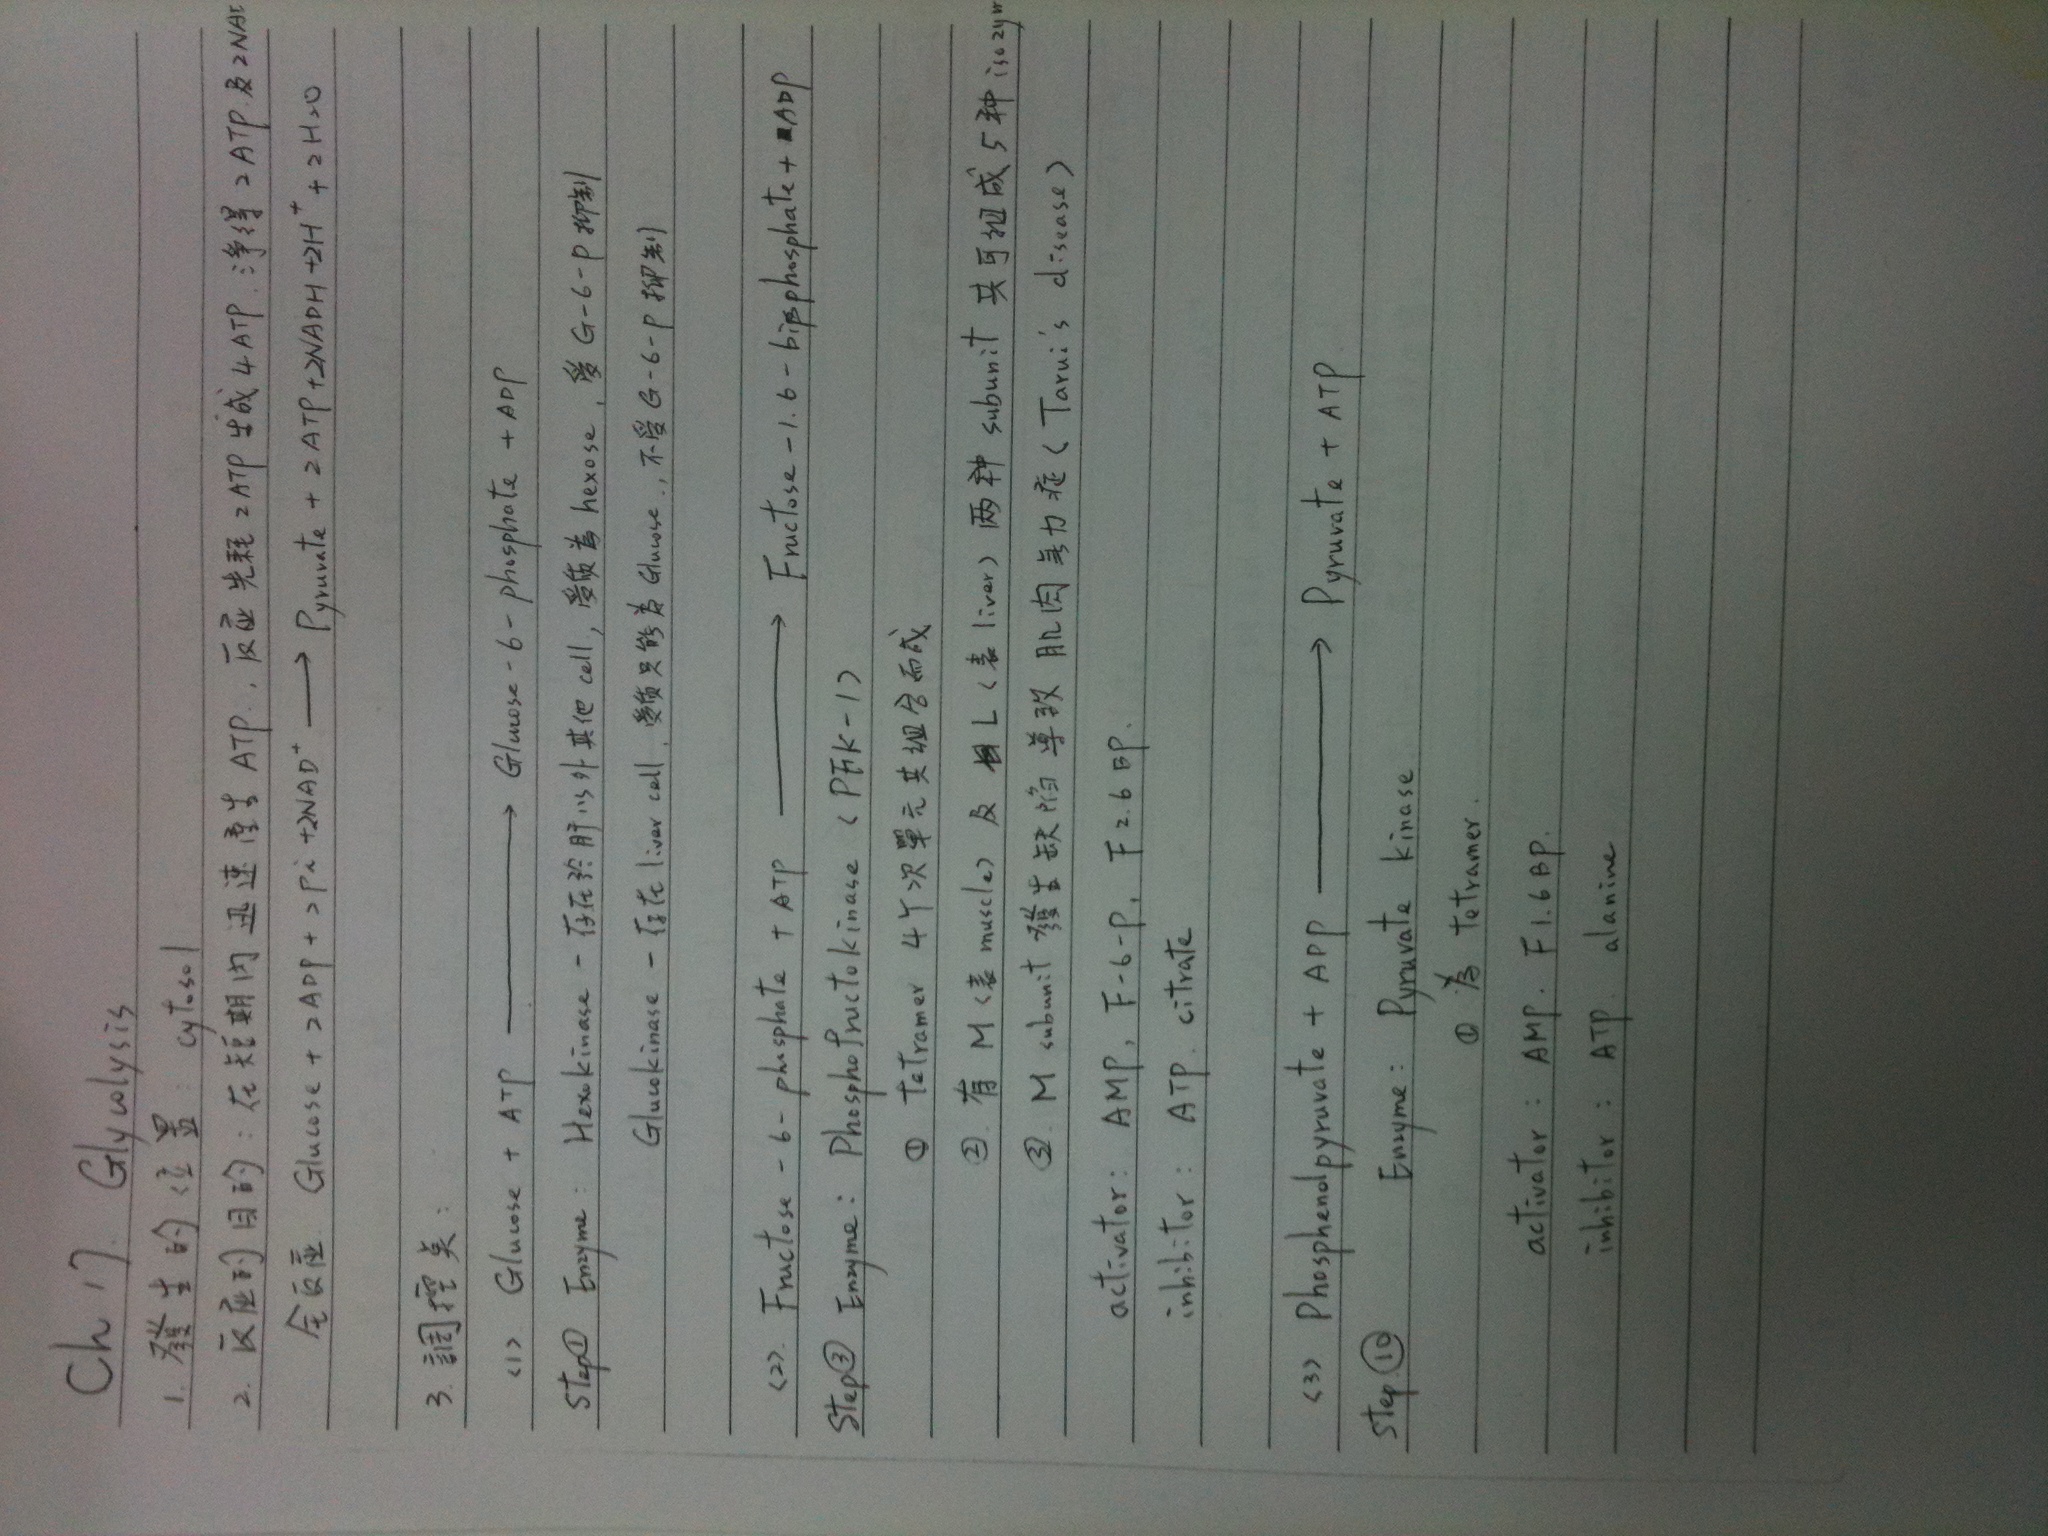 Ch 17. Glycolysis
1. 發生的位置: cytosol
2. 反应的目的: 在短期内迅速產生 ATP., 反应先耗 2ATP 生成 4ATP. 淨得 2ATP 及 2NAD
全反应 Glucose + 2ADP + 2Pi + 2NAD⁺ ⟶ Pyruvate + 2ATP + 2NADH + 2H⁺ + 2H₂O
3. 調控点:
<1> Glucose + ATP ⟶ Glucose-6-phosphate + ADP
Step① Enzyme: Hexokinase - 存在於肝以外其他 cell, 受质為 hexose, 受 G-6-P 抑制
Glucokinase - 存在 liver cell, 受质只能為 Glucose., 不受 G-6-P 抑制
<2>. Fructose-6-phosphate + ATP ⟶ Fructose-1.6-bisphosphate + ADP
Step③ Enzyme: Phosphofructokinase <PFK-1>
① tetramer 4个次單元共組合而成
②. 有 M <表 muscle> 及 L <表 liver> 两种 subunit 共可組成 5种 isozym
③. M subunit 發生缺陷導致 肌肉無力症 < Tarui's disease>
activator: AMP, F-6-P, F2.6BP.
inhibitor: ATP. citrate
<3> Phosphenolpyruvate + ADP ⟶ Pyruvate + ATP.
Step.⑩ Enzyme: Pyruvate kinase
① 為 tetramer.
activator: AMP. F1.6BP.
inhibitor: ATP. alanine